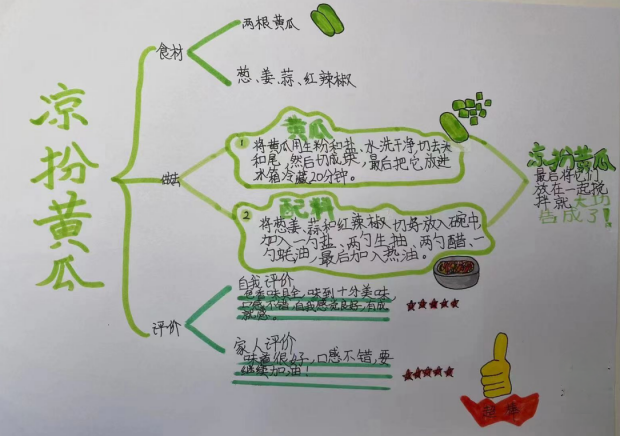 凉扮黄瓜
食材
两根黄瓜
葱、姜、蒜、红辣椒
做法
1
黄瓜
将黄瓜用生粉和盐、水洗干净,切去头
和尾,然后切成 最后把它放进
冰箱冷藏20分钟。
2
配料
将葱姜、蒜和红辣椒切好放入碗中,
加入一勺盐、两勺生抽、两勺醋、一
勺蚝油,最后加入热油。
凉扮黄瓜
最后将它们
放在一起搅
拌就大功
告成了!
评价
自我评价
色香味具全,味到十分美味,
口感不错,自我感觉良好,有成
就感。
家人评价
味道很好,口感不错,要
继续加油!
超棒